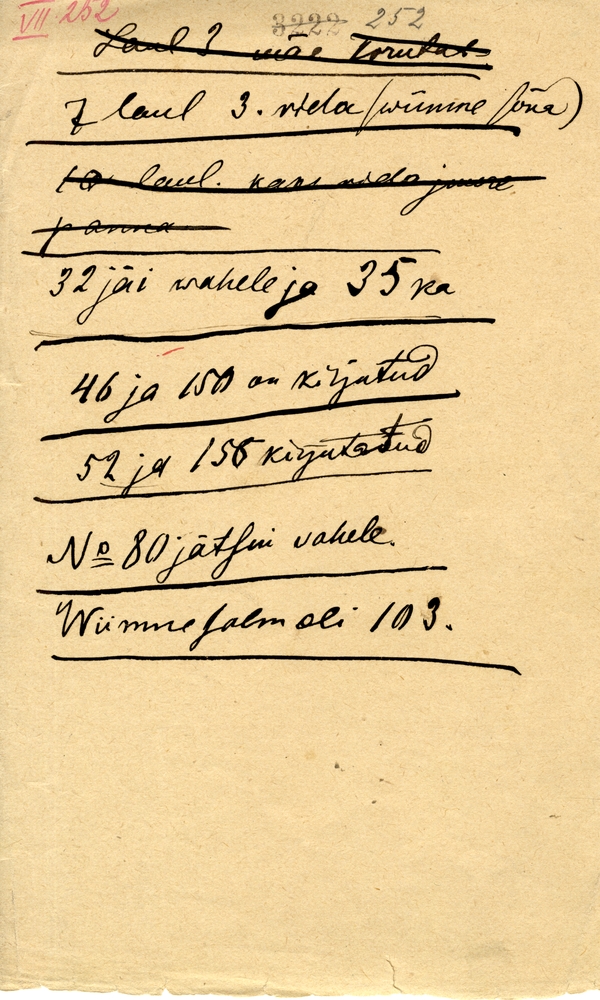 VII 252
3222 252
Laul 3
7 laul 3. rida (wiimne sõna)
10 laul. kaks rida juure
panna
32 jäi wahele ja 35 ka
46 ja 150 on kirjatud
52 ja 156 kirjutatud
No 80 jätsin vahele.
Wiimne salm oli 103.